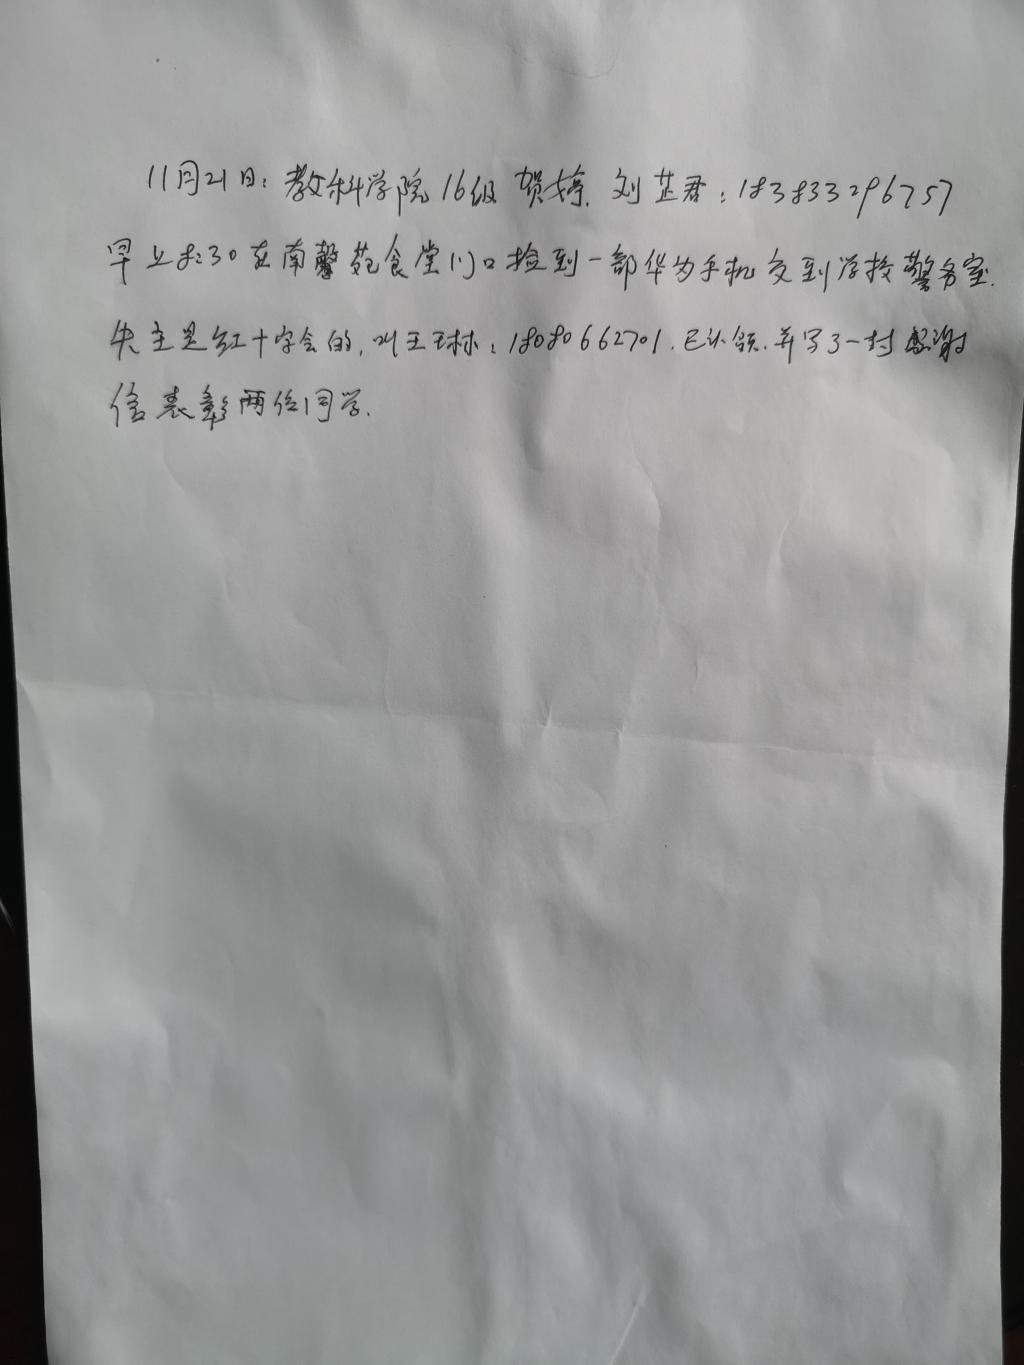 11月21日：教科学院16级 贺婷、刘芷君：183833296757
早上8:30在南馨苑食堂门口捡到一部华为手机交到学校警务室.
失主是红十字会的,叫王玉林：18080662701.已认领.并写了一封感谢
信表彰两位同学.